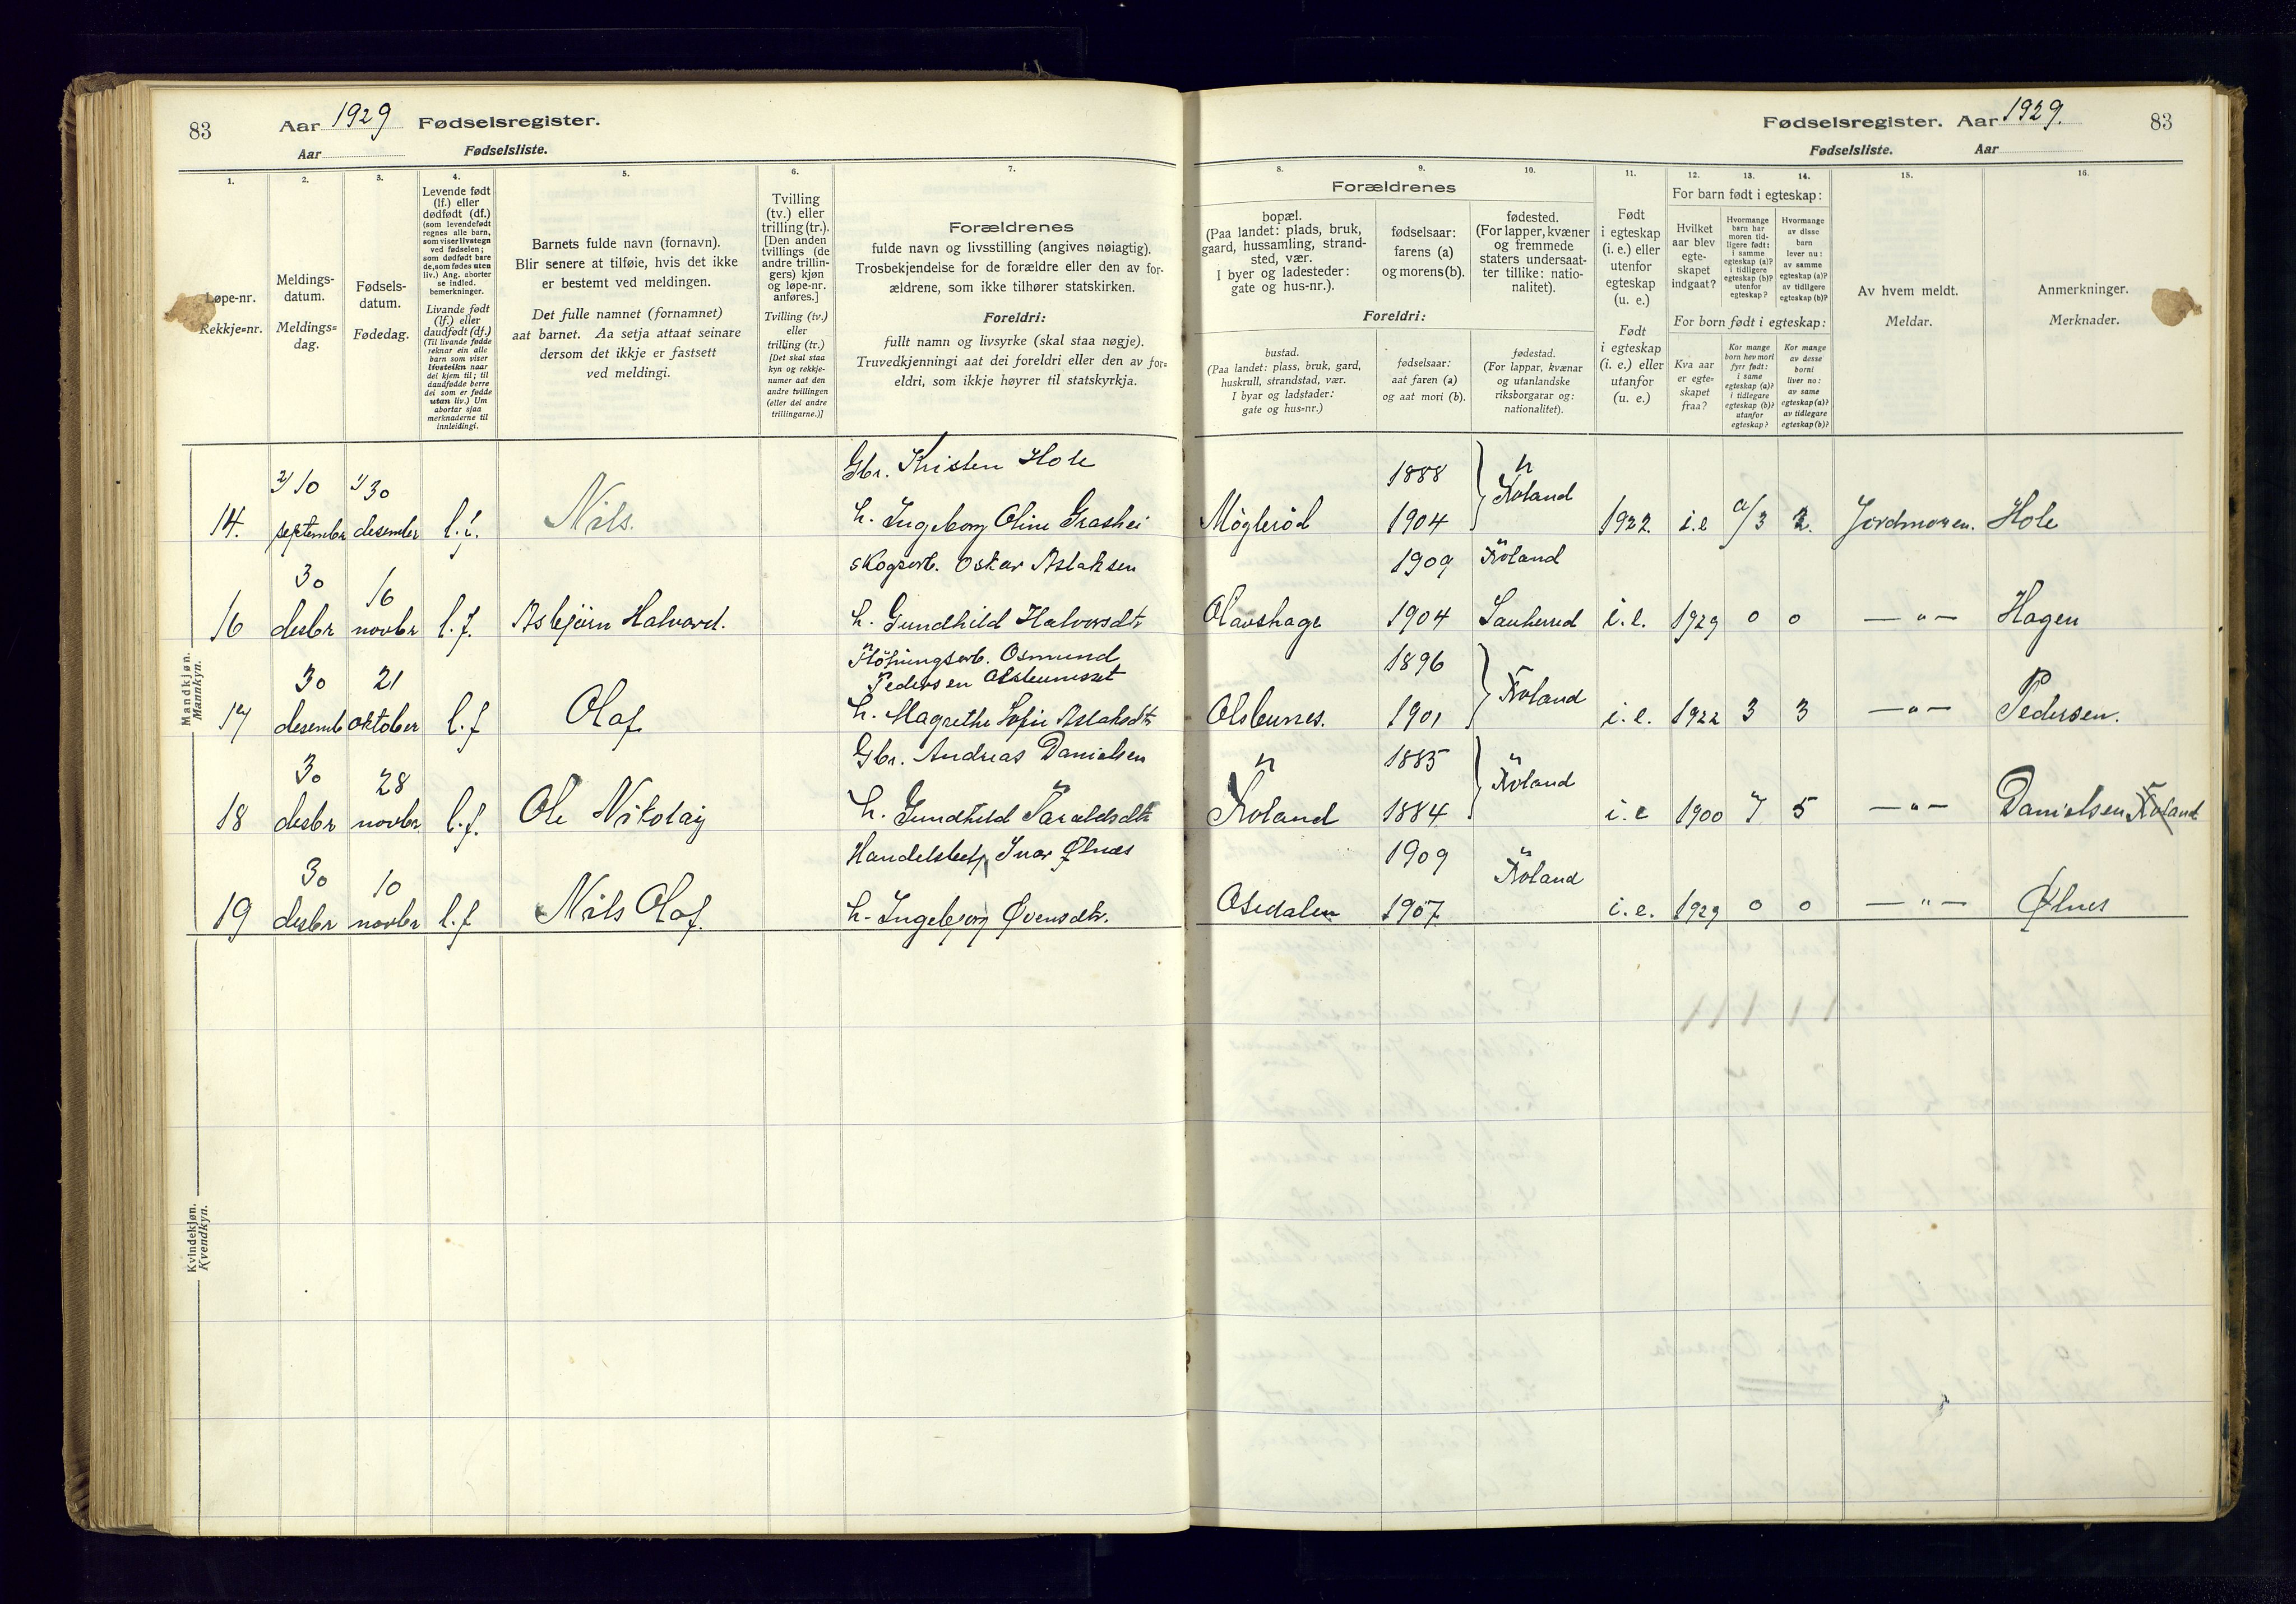 83
Aar 1929 Fødselsregister.
Aar Fødselsliste.
1.
Løpe-nr.
Rekkje=nr.
2.
Meldings-
datum.
Meldings=
dag.
3.
Fødsels-
datum.
Fødedag.
4.
Levende født
(lf.) eller
dødfødt (df.)
(som levendefødt
regnes alle barn,
som viser livstegn
ved fødselen;
som dødfødt bare
de, som fødes uten
liv.) Ang. aborter
se indled.
bemerkninger.
Livande født
(lf.) eller
daudfødt (df.)
(Til livande fødde
reknar ein alle
barn som viser
livsteikn naar
dei kjem til; til
daudfødde berre
dei som er fødde
utan liv.) Um
abortar sjaa
merknaderne til
innleidingi.
5.
Barnets fulde navn (fornavn).
Blir senere at tilføie, hvis det ikke
er bestemt ved meldingen.
Det fulle namnet (fornamnet)
aat barnet. Aa setja attaat seinare
dersom det ikkje er fastsett
ved meldingi.
6.
Tvilling
(tv.) eller
trilling (tr.).
[Den anden
tvillings (de
andre trillin-
gers) kjøn
og løpe-nr.
anføres.]
Tvilling (tv.)
eller
trilling (tr.)
[Det skal staa
kyn og rekkje-
numer aat den
andre tvillingen
(eller dei andre
trillingarne.)]
7.
Forældrenes
fulde navn og livsstilling (angives nøiagtig).
Trosbekjendelse for de forældre eller den av for-
ældrene, som ikke tilhører statskirken.
Foreldri:
fullt namn og livsyrke (skal staa nøgje).
Truvedkjenningi aat dei foreldri eller den av for=
eldri, som ikkje høyrer til statskyrkja.
Mandkjøn.
Mannkyn.
14. 2/10 september 1/30 desember l.f. Nils. Gbr. Kristen Hole
h. Ingeborg Oline Grashei
16 30 desbr 16 novbr l.f. Asbjørn Halvard. skogsarb. Oskar Aslaksen
h. Gundhild Halvorsdtr
17 30 desemb 21 oktober l.f Olaf. Fløtningsarb. Osmund
Pedersen
h. Magrethe Sofie Aslaksdtr
18 30 desbr 28 novbr l.f. Ole Nikolaij Gbr. Andreas Danielsen
h. Gundhild Taraldsdtr
19 30 desbr 10 novbr l.f Nils Olaf. Handelsbetj. Ivar Ølnes
h. Ingebjorg Øvensdtr.
Kvindekjøn.
Kvendkyn.
Fødselsregister. Aar 1929.
83
Fødselsliste. Aar
8.
Forældrenes
bopæl.
(Paa landet: plads, bruk,
gaard, hussamling, strand-
sted, vær.
I byer og ladesteder:
gate og hus-nr.).
Foreldri:
bustad.
(Paa landet: plass, bruk, gard,
huskrull, strandstad, vær.
I byar og ladstader:
gate og hus=nr.)
9.
fødselsaar:
farens (a)
og morens (b).
fødselsaar:
aat faren (a)
og aat mori (b).
10.
fødested.
(For lapper, kvæner
og fremmede
staters undersaat-
ter tillike: natio-
nalitet).
fødestad.
(For lappar, kvænar
og utanlandske
riksborgarar og:
nationalitet).
11.
Født
i egteskap
(i. e.) eller
utenfor
egteskap
(u. e.)
Født
i egteskap
(i. e.) eller
utanfor
(u. e.)
12. 13. 14.
For barn født i egteskap:
Hvilket
aar blev
egte-
skapet
indgaat?
Hvormange
barn har
moren tid-
ligere født:
i samme
egteskap (a)?
i tidligere
egteskap (b)?
utenfor
egteskap?
Hvormange
av disse
barn
lever nu:
av samme
egteskap (a)?
av tidligere
egteskap (b)?
For born født i egteskap:
Kva aar
er egte=
skapet
fraa?
Kor mange
born hev mori
fyrr født:
i same
egteskap (a)?
i tidlegare
egteskap (b)?
utanfor
egteskap?
Kor mange
av desse
borni
liver no:
av same
egteskap (a)?
av tidlegare
egteskap (b)?
15.
Av hvem meldt.
Meldar.
16.
Anmerkninger.
Merknader.
1888
Møglerød 1904 Froland 1922. i.e a/3 2. Jordmoren. Hole
1909 Froland
Olavshage 1904 Sauherred i.e. 1929 0 0 — " — Hagen
1896
1901 Froland i.e. 1922 3 3 — " — Pedersen.
1885
Froland 1884 Froland i.e 1900 7 5 — " — Danielsen Froland
1909 Froland
Osedalen 1907 i.e. 1929 0 0 — " — Ølnes